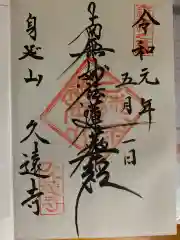 令和元年
五月一日
南無妙法蓮華経
身延山
久遠寺